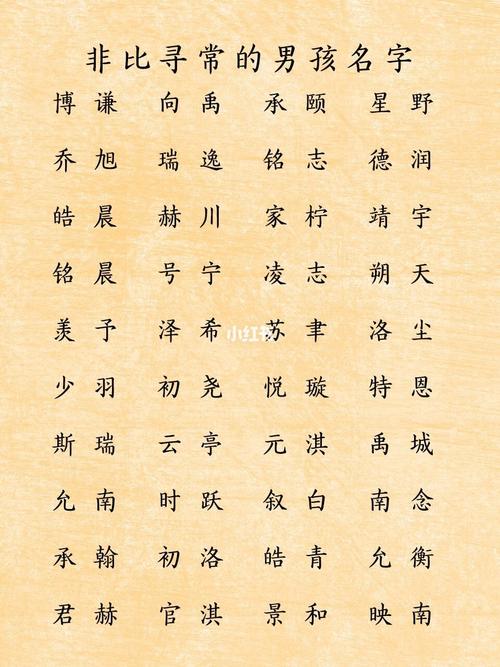 非比寻常的男孩名字
博谦 向禹 承颐 星野
乔旭 瑞逸 铭志 德润
皓晨 赫川 家柠 靖宇
铭晨 号宁 凌志 朔天
羡予 泽希 苏聿 洛尘
小红书
少羽 初尧 悦璇 特恩
斯瑞 云亭 元淇 禹城
允南 时跃 叙白 南念
承翰 初洛 皓青 允衡
君赫 官淇 景和 映南